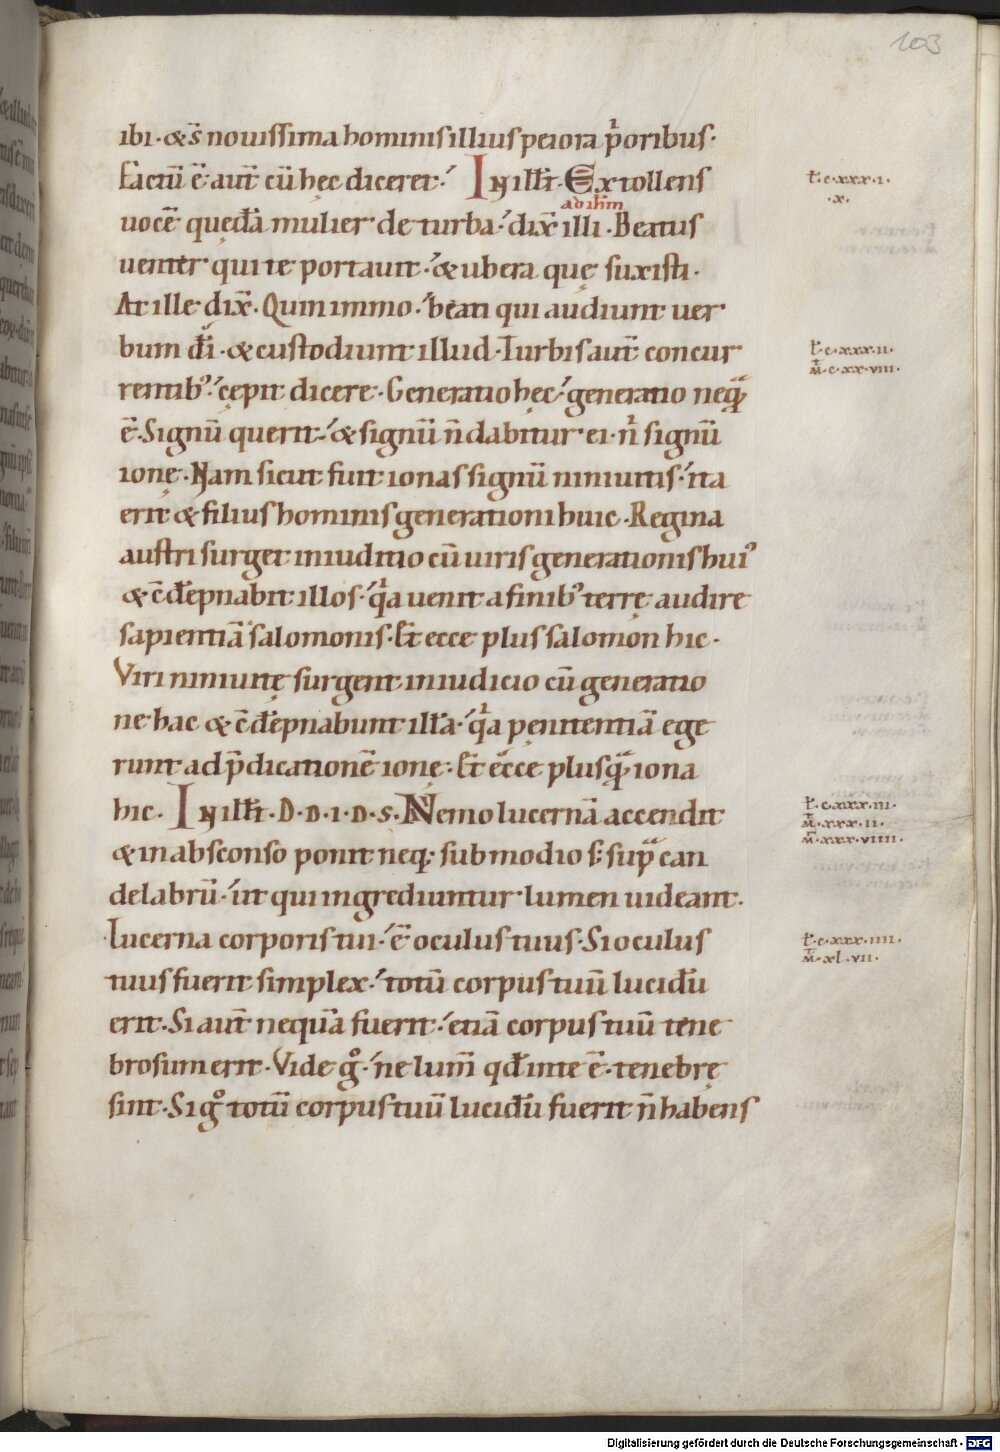 103
ibi · &s̄ nouissima hominis illius peiora p̍oribus ·
Factū ē · aut̄ cū hęc diceret · IN ill̄r · Extollens
ad ih̄m
uocē quedā mulier de turba · dix̄ illi · Beatus
uenter qui te portauit · & ubera quę suxisti ·
At ille dix̄ · Quinimmo · beati qui audiunt uer
bum dī · & custodiunt illud · Turbis aut̄ concur
rentib; cępit dicere · Generatio hęc · generatio neqͣ
ē · Signū querit · & signū n̄ dabitur ei · n̍ signū
ionę · Nam sicut fuit ionas signū niniuitis · ita
erit & filius hominis generationi huic · Regina
austri surget in iuditio cū uiris generationis hui᾽
& c̄dēpnabit illos · q̍a uenit a finib᾽ terrę audire
sapientiā salomonis · Et ecce plus salomon hic ·
Viri niniuitę surgent in iudicio cū generatio
ne hac & c̄dēpnabunt illā · q̍a pęnitentiā ege
runt ad p̄dicationē ionę · Et ecce plus qͣ iona
hic · IN ill̄r · D · n · i · d · s · Nemo lucernā accendit
& in absconso ponit neq; sub modio s; sup̄ can
delabrū · ut qui ingrediuntur lumen uideant ·
Lucerna corporis tui · ē oculus tuus · Si oculus
tuus fuerit simplex · totū corpus tuū lucidū
erit · Si aut̄ nequā fuerit · etiā corpus tuū tene
brosum erit · Vide gͦ · ne lum̄ qd̄ in te ē · tenebrę
sint · Si gͦ totū corpus tuū lucidū fuerit n̄ habens
· c · xxx · i ·
· x ·
· c · xxx · ii ·
M̄ · c · xx · viii ·
· c · xxx · iii ·
M̄ · xxx · ii ·
M̄ · xxx · viiii ·
· c · xxx · iiii ·
M̄ · xl · vii ·
Digitalisierung gefördert durch die Deutsche Forschungsgemeinschaft - DFG